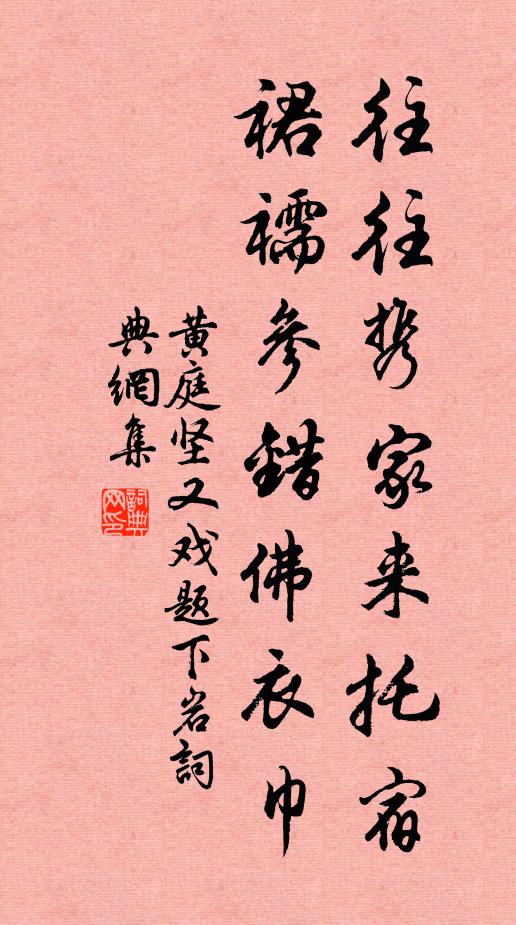 往往携家来托宿
裙襦参错佛衣巾
黄庭坚又戏题下岩詞
典網集
詞典
网印